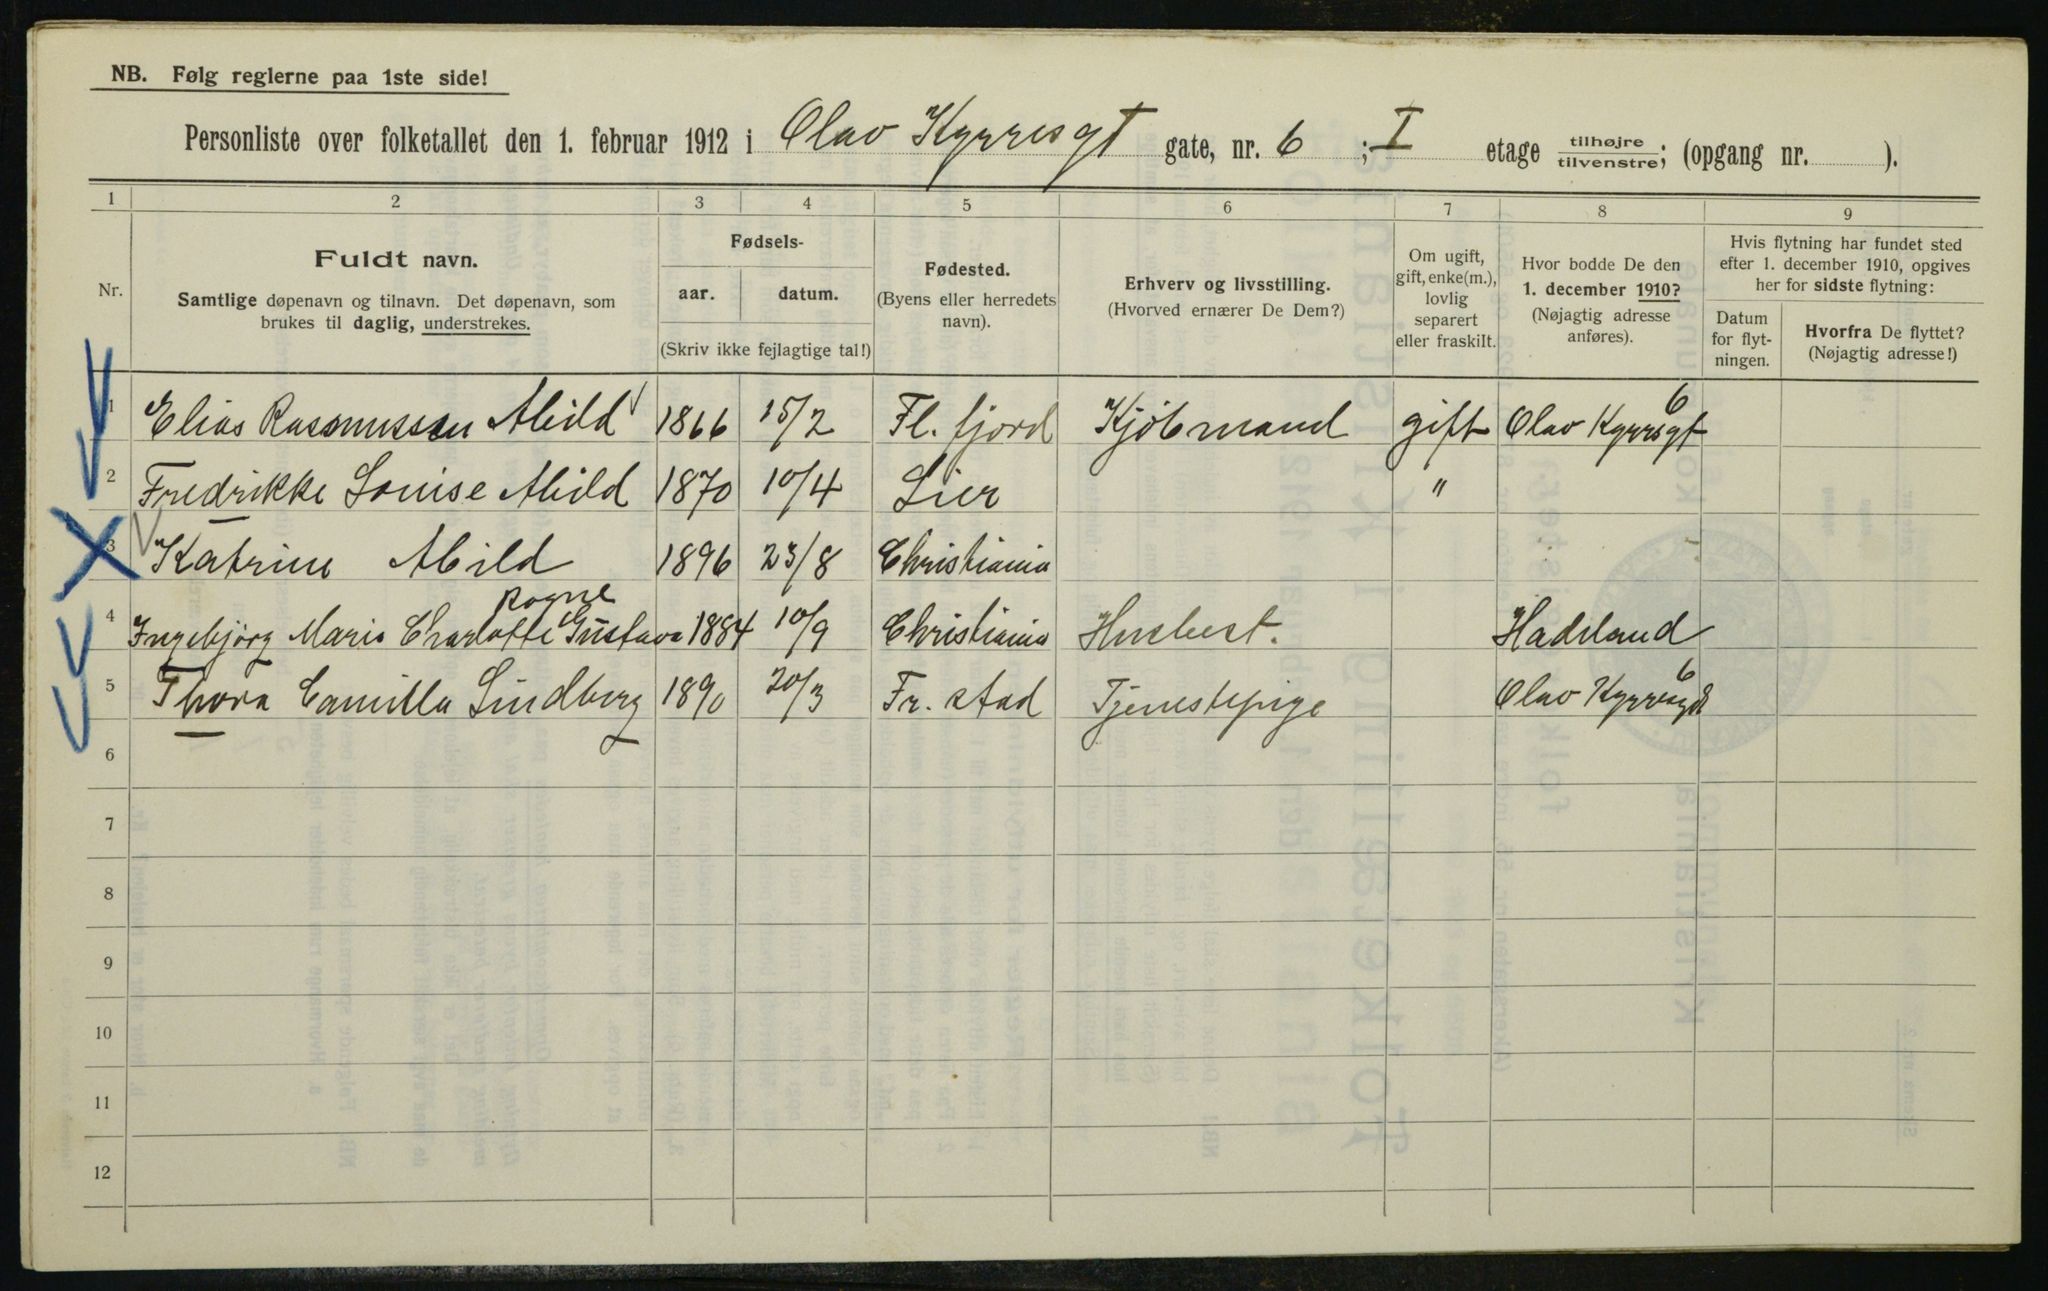 NB. Følg reglerne paa 1ste side!
Personliste over folketallet den 1. februar 1912 i Olav Kyrresgt gate, nr. 6 ; I etage tilhøjre/tilvenstre; (opgang nr. ).
1 2 3 4 5 6 7 8 9
Nr.
Fuldt navn.
Samtlige døpenavn og tilnavn. Det døpenavn, som
brukes til daglig, understrekes.
Fødsels-
aar. datum.
(Skriv ikke fejlagtige tal!)
Fødested.
(Byens eller herredets
navn).
Erhverv og livsstilling.
(Hvorved ernærer De Dem?)
Om ugift,
gift, enke(m.),
lovlig
separert
eller fraskilt.
Hvor bodde De den
1. december 1910?
(Nøjagtig adresse
anføres).
Hvis flytning har fundet sted
efter 1. december 1910, opgives
her for sidste flytning:
Datum
for flyt-
ningen.
Hvorfra De flyttet?
(Nøjagtig adresse!)
1 Elias Rasmussen Abild 1866 15/2 Fl. fjord Kjöbmand gift Olav Kyrresgt 6
2 Fredrikke Louise Abild 1870 10/4 Lier "
3 Katrine Abild 1896 23/8 Christiania
4 Ingebjörg Marie Charlotte Gustava 1884 10/9 Christiania Husbest. Hadeland
5 Thora Camilla Lindberg 1890 20/3 Fr. stad Tjenestepige Olav Kyrresgt 6
6
7
8
9
10
11
12